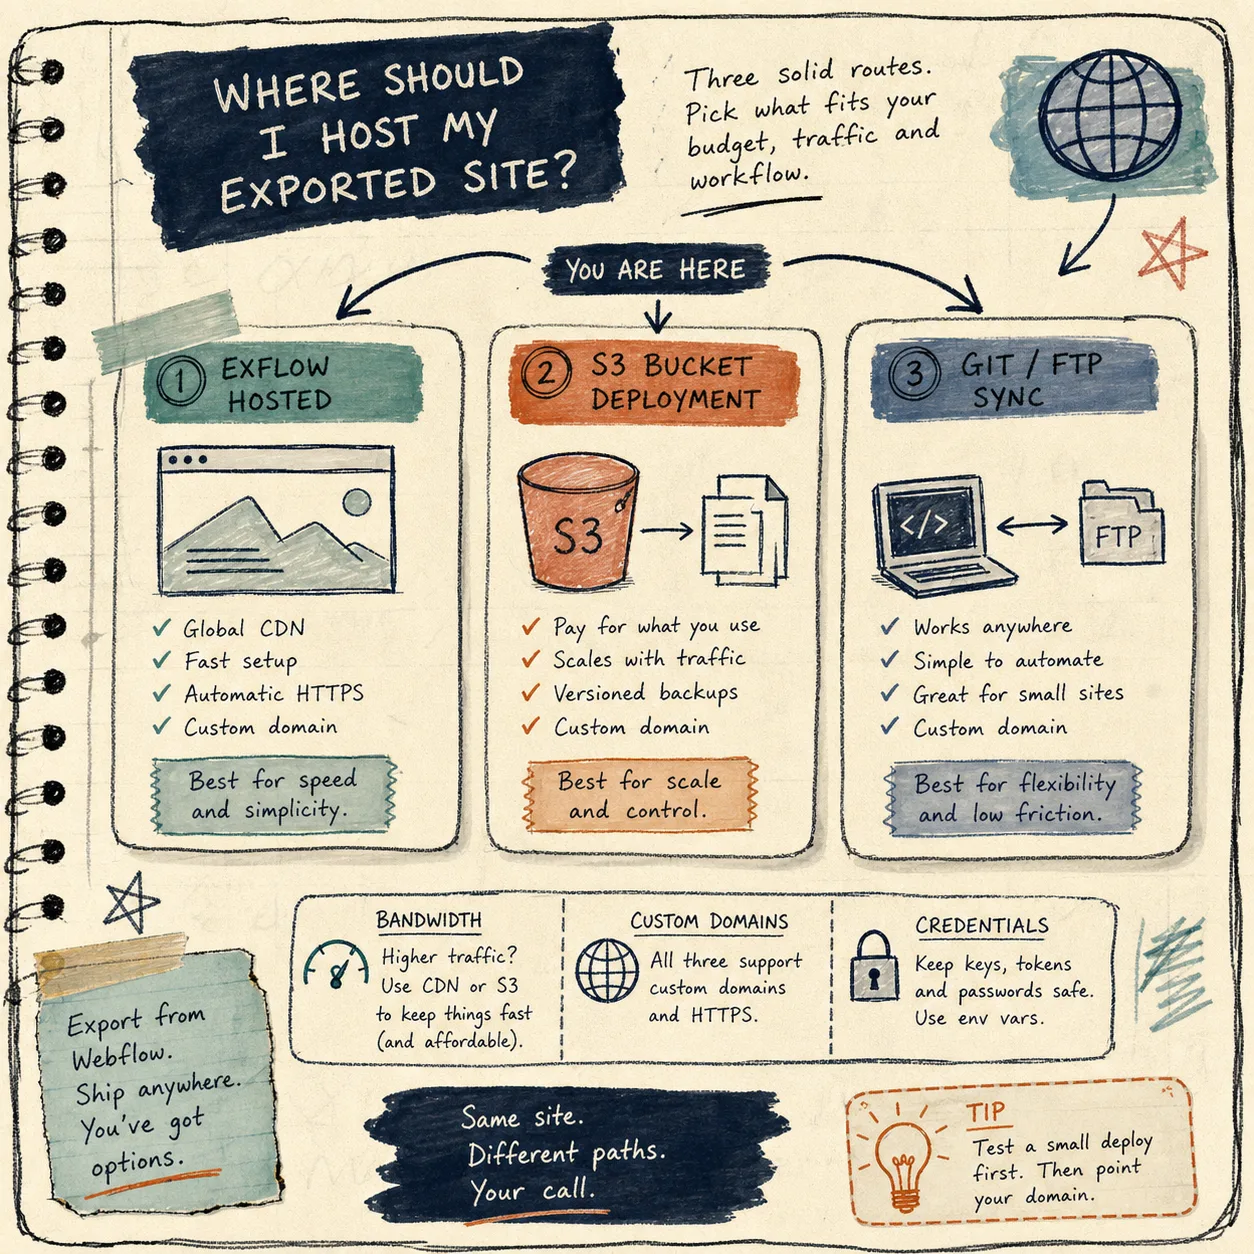 WHERE SHOULD
I HOST MY
EXPORTED SITE?
Three solid routes.
Pick what fits your
budget, traffic and
workflow.
YOU ARE HERE
1 EXFLOW
HOSTED
Global CDN
Fast setup
Automatic HTTPS
Custom domain
Best for speed
and simplicity.
2 S3 BUCKET
DEPLOYMENT
S3
Pay for what you use
Scales with traffic
Versioned backups
Custom domain
Best for scale
and control.
3 GIT / FTP
SYNC
</>
FTP
Works anywhere
Simple to automate
Great for small sites
Custom domain
Best for flexibility
and low friction.
BANDWIDTH
Higher traffic?
Use CDN or S3
to keep things fast
(and affordable).
CUSTOM DOMAINS
All three support
custom domains
and HTTPS.
CREDENTIALS
Keep keys, tokens
and passwords safe.
Use env vars.
Export from
Webflow.
Ship anywhere.
You've got
options.
Same site.
Different paths.
Your call.
TIP
Test a small deploy
first. Then point
your domain.